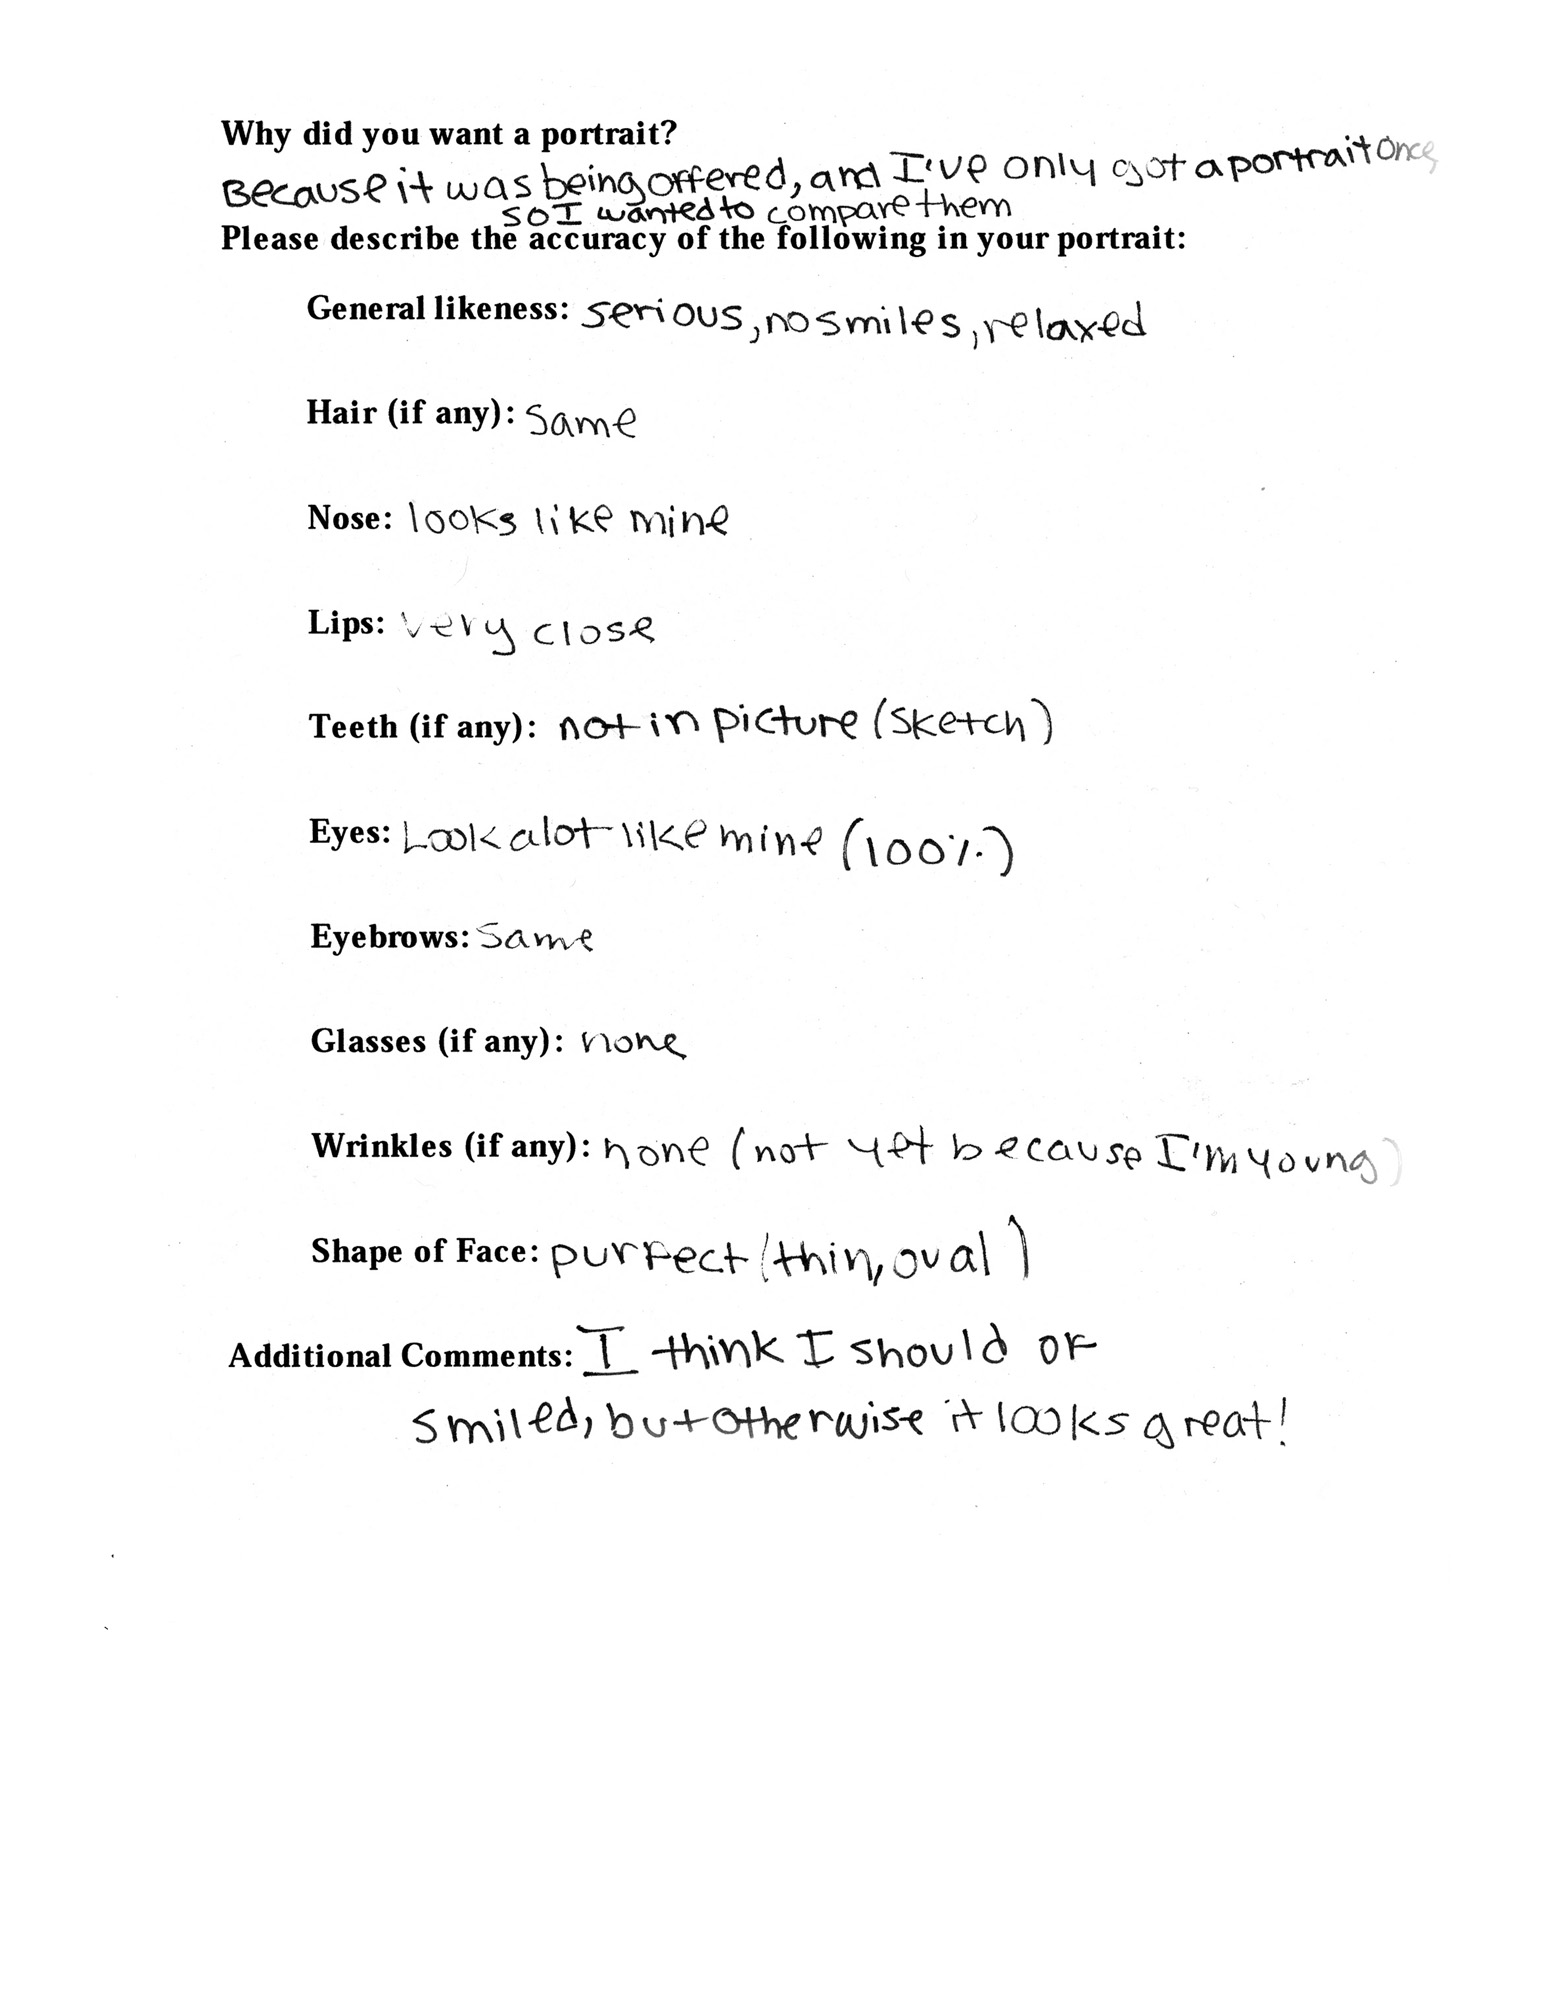 Why did you want a portrait?
Because it was being offered, and I've only got a portrait once,
so I wanted to compare them
Please describe the accuracy of the following in your portrait:
General likeness: serious, no smiles, relaxed
Hair (if any): same
Nose: looks like mine
Lips: very close
Teeth (if any): not in picture (sketch)
Eyes: Look alot like mine (100%)
Eyebrows: same
Glasses (if any): none
Wrinkles (if any): none (not yet because I'm young)
Shape of Face: purfect (thin, oval)
Additional Comments: I think I should of
smiled, but otherwise it looks great!